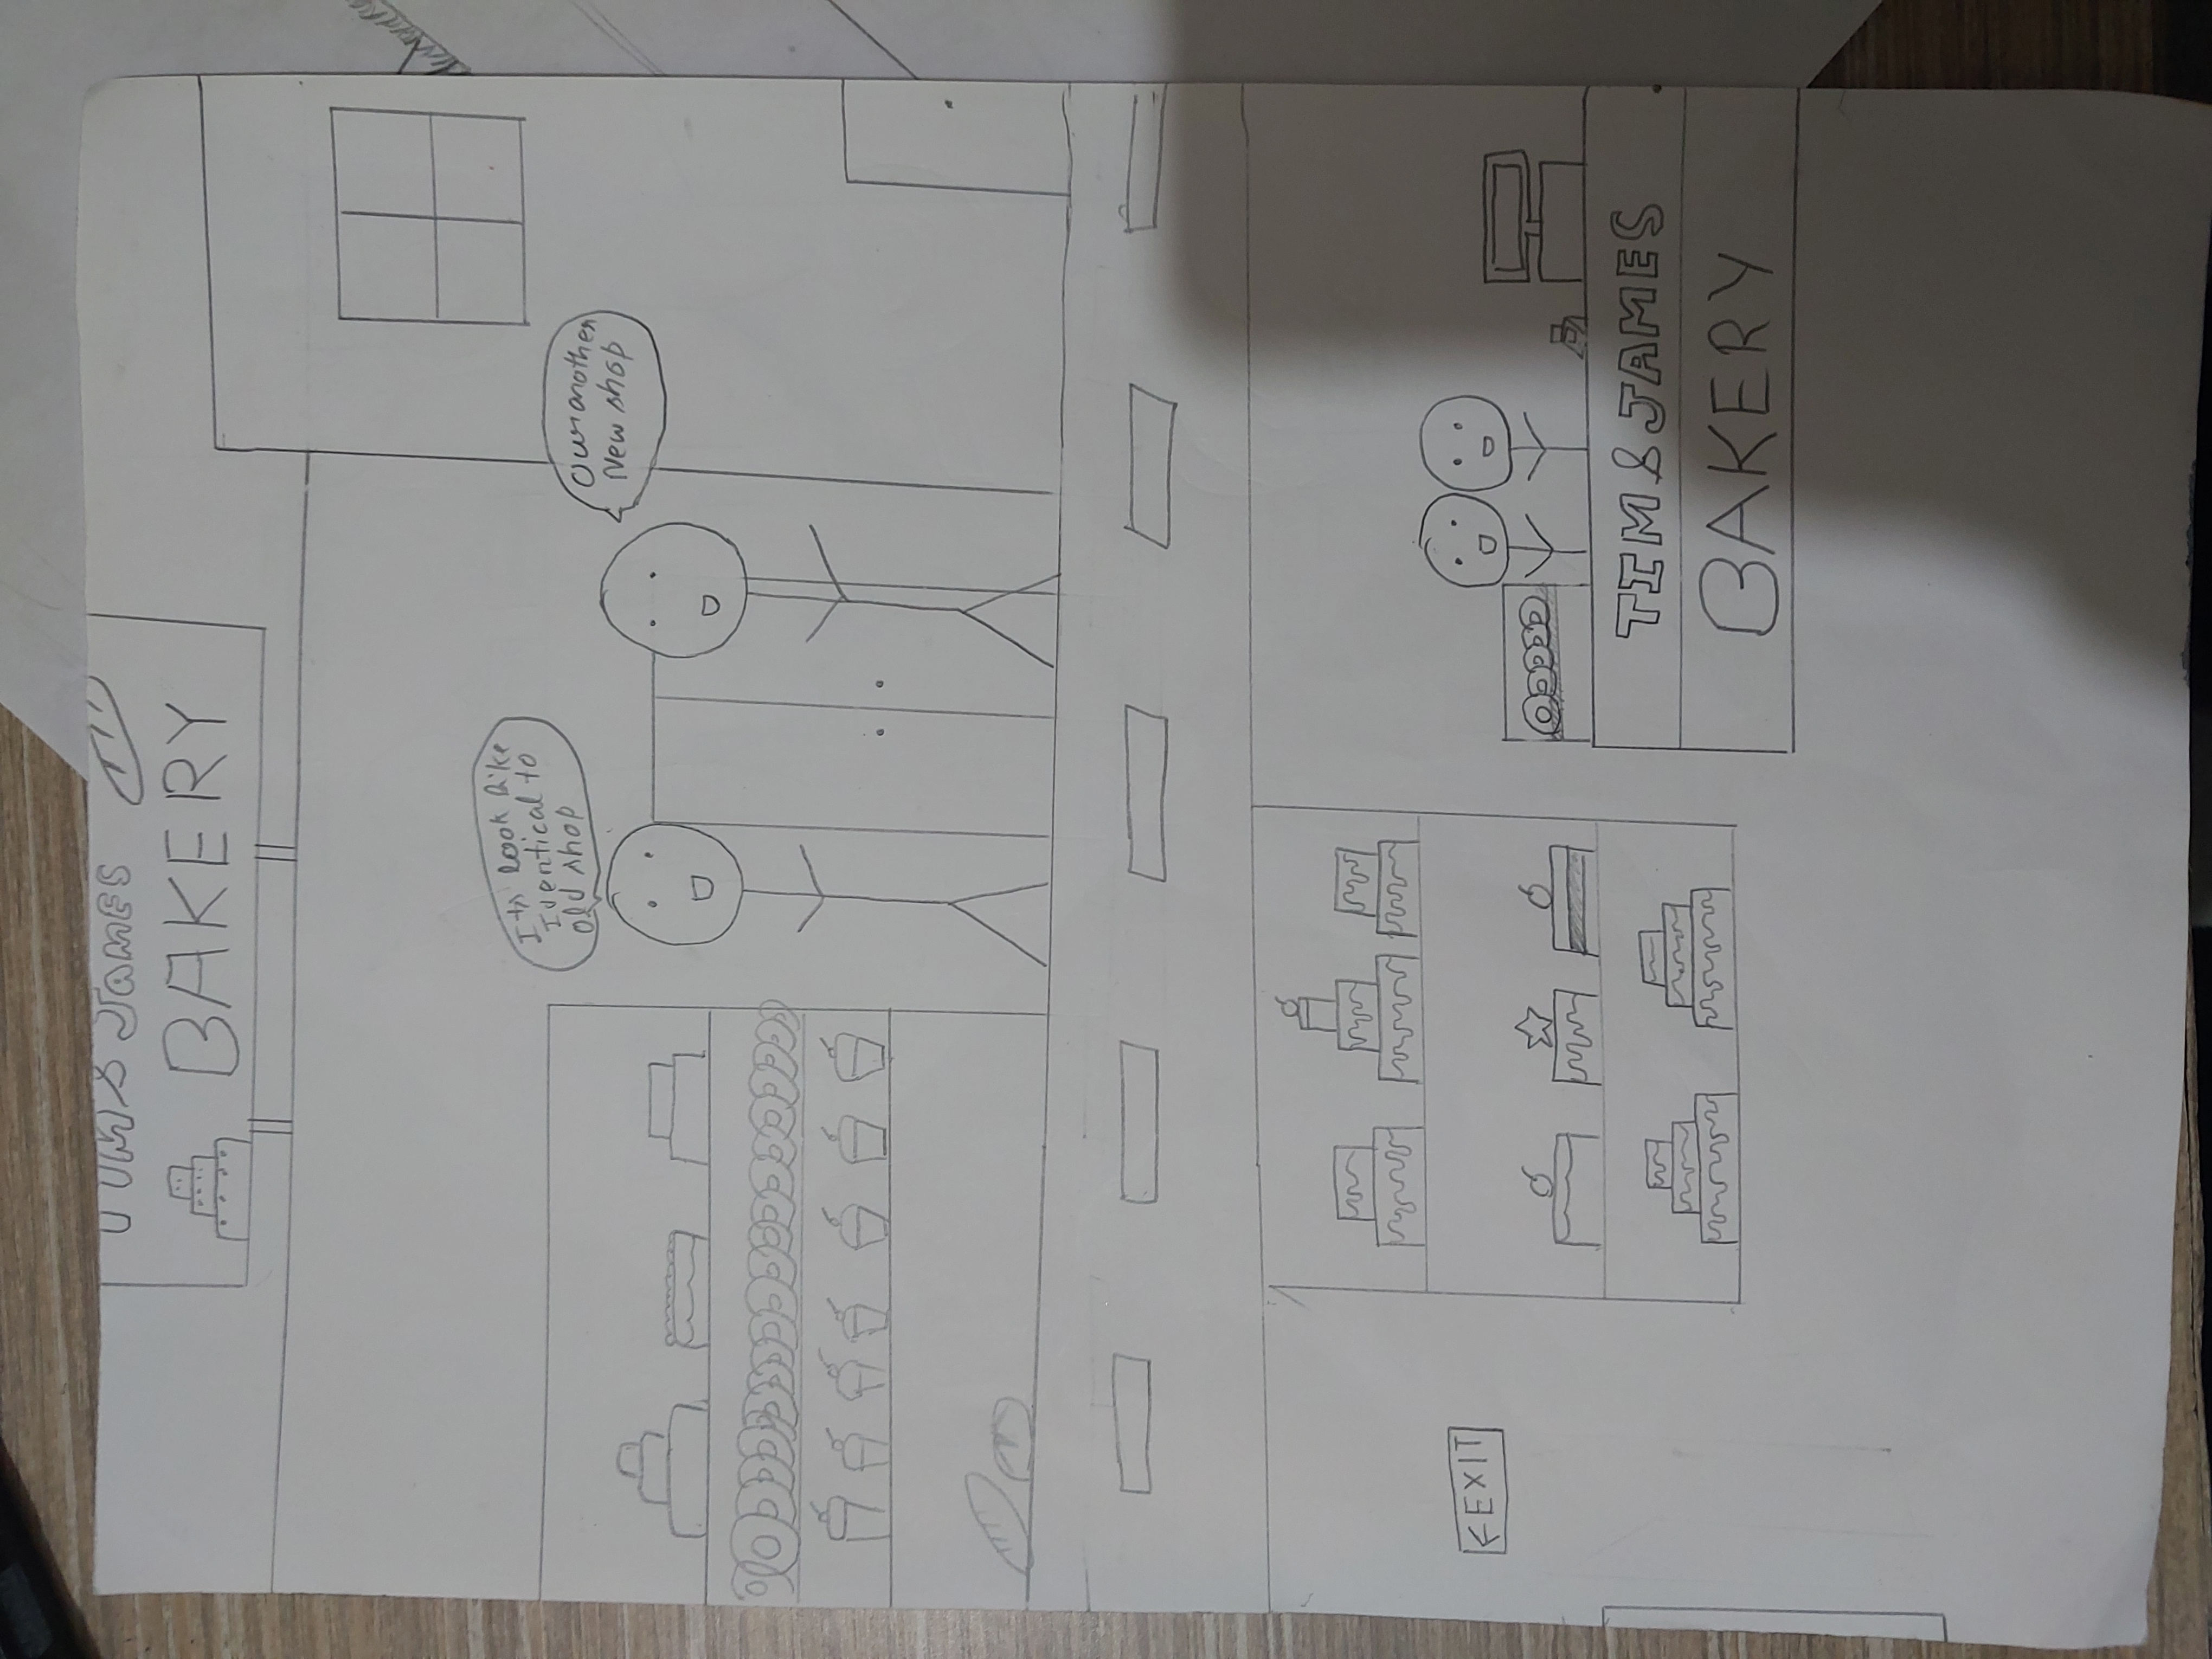 TIM & JAMES
BAKERY
Its look like
Identical to
old shop
Our another
New shop
← EXIT
TIM & JAMES
BAKERY